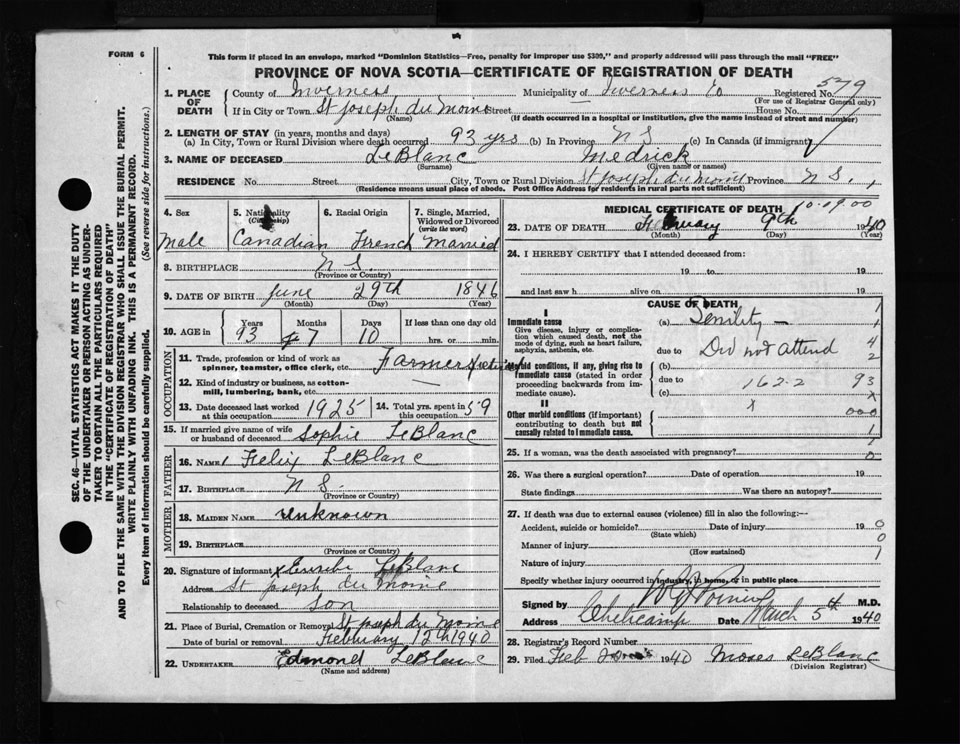 FORM 6
This form if placed in an envelope, marked "Dominion Statistics—Free, penalty for improper use $300," and properly addressed will pass through the mail "FREE"
PROVINCE OF NOVA SCOTIA—CERTIFICATE OF REGISTRATION OF DEATH
579
1. PLACE OF DEATH County of Inverness Municipality of Inverness Co Registered No.
(For use of Registrar General only)
If in City or Town St Joseph du Moine Street House No.
(Name) (If death occurred in a hospital or institution, give the name instead of street and number)
2. LENGTH OF STAY (in years, months and days)
(a) In City, Town or Rural Division where death occurred 93 yrs (b) In Province N S (c) In Canada (if immigrant)
3. NAME OF DECEASED LeBlanc Medrick
(Surname) (Given name or names)
RESIDENCE No. Street City, Town or Rural Division St Joseph du Moine Province N S.
(Residence means usual place of abode. Post Office Address for residents in rural parts not sufficient)
4. Sex 5. Nationality (Citizenship) 6. Racial Origin 7. Single, Married, Widowed or Divorced (write the word)
Male Canadian French Married
8. BIRTHPLACE N S.
(Province or Country)
9. DATE OF BIRTH June 29th 1846
(Month) (Day) (Year)
10. AGE in Years Months Days If less than one day
93 7 10 hrs. or min.
OCCUPATION
11. Trade, profession or kind of work as spinner, teamster, office clerk, etc. Farmer
12. Kind of industry or business, as cotton-mill, lumbering, bank, etc. —
13. Date deceased last worked at this occupation 1925 14. Total yrs. spent in this occupation 59
15. If married give name of wife or husband of deceased Sophie LeBlanc
FATHER
16. Name Felix LeBlanc
17. BIRTHPLACE N S.
(Province or Country)
MOTHER
18. MAIDEN NAME Unknown
19. BIRTHPLACE
(Province or Country)
20. Signature of informant X LeBlanc
Address St Joseph du Moine
Relationship to deceased son
21. Place of Burial, Cremation or Removal St Joseph du Moine
Date of burial or removal February 12th 1940
22. UNDERTAKER Edmond LeBlanc
(Name and address)
MEDICAL CERTIFICATE OF DEATH 10.19.00
23. DATE OF DEATH February 9th 1940
(Month) (Day) (Year)
24. I HEREBY CERTIFY that I attended deceased from:
19 to 19
and last saw h alive on 19
CAUSE OF DEATH
I
Immediate cause (a) Senility —
Give disease, injury or complication which caused death, not the mode of dying, such as heart failure, asphyxia, asthenia, etc.
due to Did not attend
Morbid conditions, if any, giving rise to immediate cause (stated in order proceeding backwards from immediate cause).
(b)
due to 162-2
(c)
1
1
4
2
93
x
000
1
0
II
Other morbid conditions (if important) contributing to death but not causally related to immediate cause. x
25. If a woman, was the death associated with pregnancy?
26. Was there a surgical operation? Date of operation 19
State findings Was there an autopsy?
27. If death was due to external causes (violence) fill in also the following:—
Accident, suicide or homicide? Date of injury 19 0
(State which)
Manner of injury 0
(How sustained)
Nature of injury 1
Specify whether injury occurred in industry, in home, or in public place
Signed by M.D.
Address Cheticamp Date March 5th 1940
28. Registrar's Record Number
29. Filed Feb 1940 Moses LeBlanc
(Division Registrar)
SEC. 46—VITAL STATISTICS ACT MAKES IT THE DUTY
OF THE UNDERTAKER OR PERSON ACTING AS UNDERTAKER TO OBTAIN ALL THE PARTICULARS REQUIRED
IN THE "CERTIFICATE OF REGISTRATION OF DEATH"
AND TO FILE THE SAME WITH THE DIVISION REGISTRAR WHO SHALL ISSUE THE BURIAL PERMIT.
WRITE PLAINLY WITH UNFADING INK. THIS IS A PERMANENT RECORD.
Every item of information should be carefully supplied. (See reverse side for instructions.)